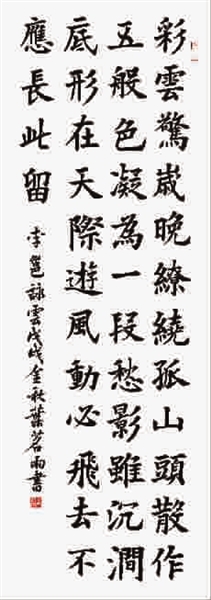 彩雲驚歲晚繚繞孤山頭散作
五般色凝為一段愁影雖沉澗
底形在天際遊風動必飛去不
應長此留
李邕詠雲戊戌金秋葉茗雨書